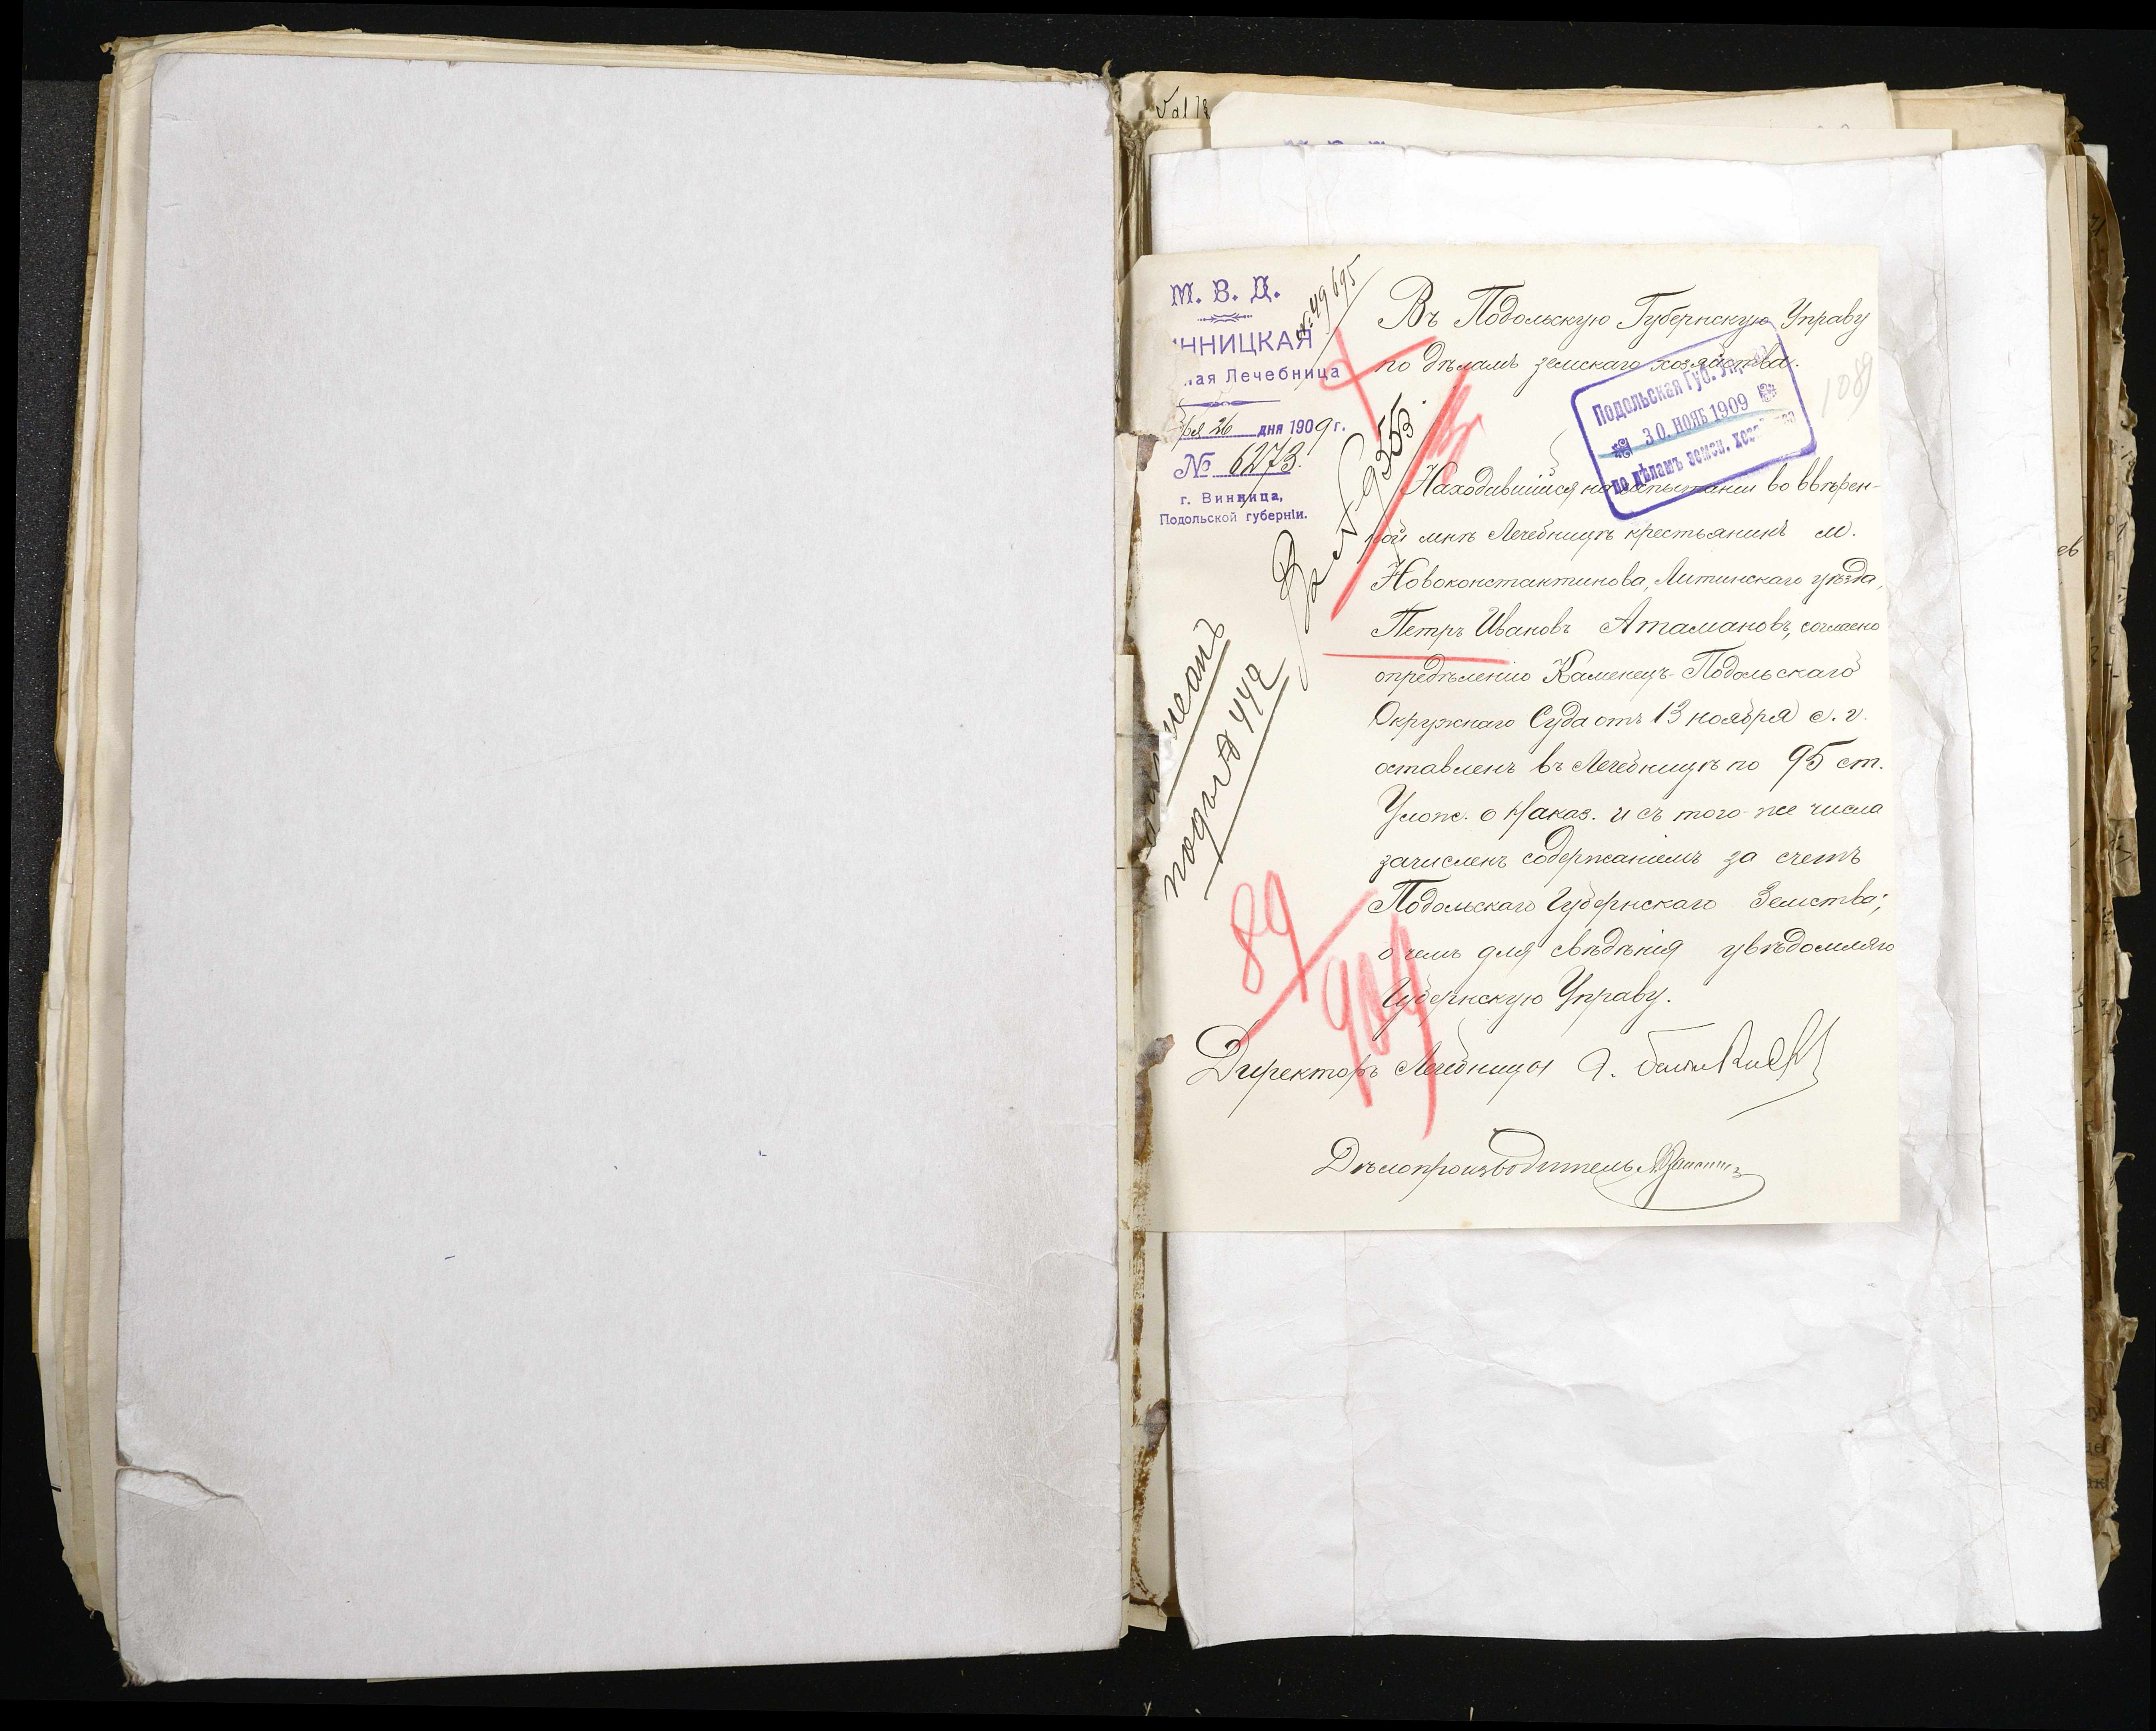 М. В. Д.
ННИЦКАЯ
ная Лечебница
бря 26 дня 1909 г.
№ 6273.
г. Винница,
Подольской губерніи.
№ 49695
За № 9355.
Въ Подольскую Губернскую Управу
по дѣламъ земскаго хозяйства.
Подольская Губ. Упр
30. НОЯБ 1909
по дѣламъ земск. хоз
1089
Находившійся на испытаніи во ввѣрен-
ной мнѣ Лечебницѣ крестьянинъ м.
Новоконстантинова, Литинскаго уѣзда,
Петръ Ивановъ Атамановъ, согласно
опредѣленію Каменецъ-Подольскаго
Окружнаго Суда отъ 13 ноября с. г.
оставленъ въ Лечебницѣ по 95 ст.
Улож. о Наказ. и съ того-же числа
зачисленъ содержаніемъ за счетъ
Подольскаго Губернскаго Земства;
о чемъ для свѣдѣнія увѣдомляю
Губернскую Управу.
89
Директоръ Лечебницы
Дѣлопроизводитель